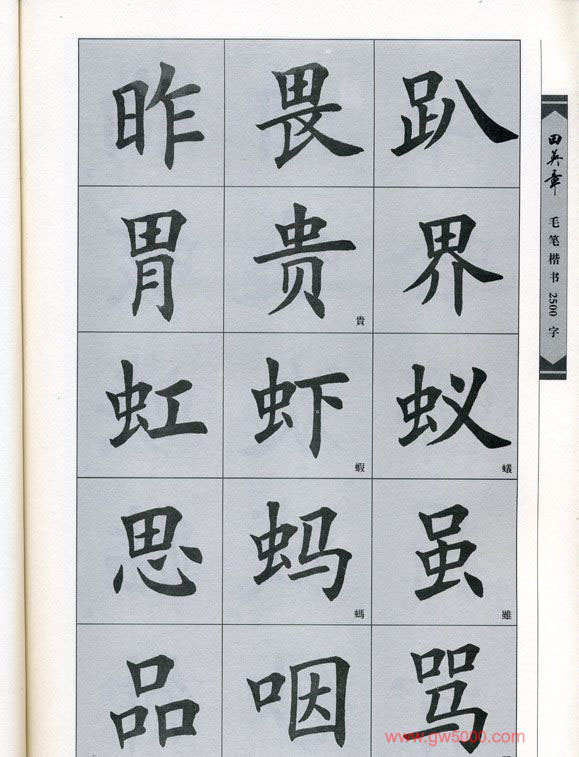 昨 畏 趴
胃 贵 界
貴
虹 虾 蚁
蝦 蟻
思 蚂 虽
螞 雖
品 咽 骂
田英章
毛笔楷书2500字
www.gw5000.com